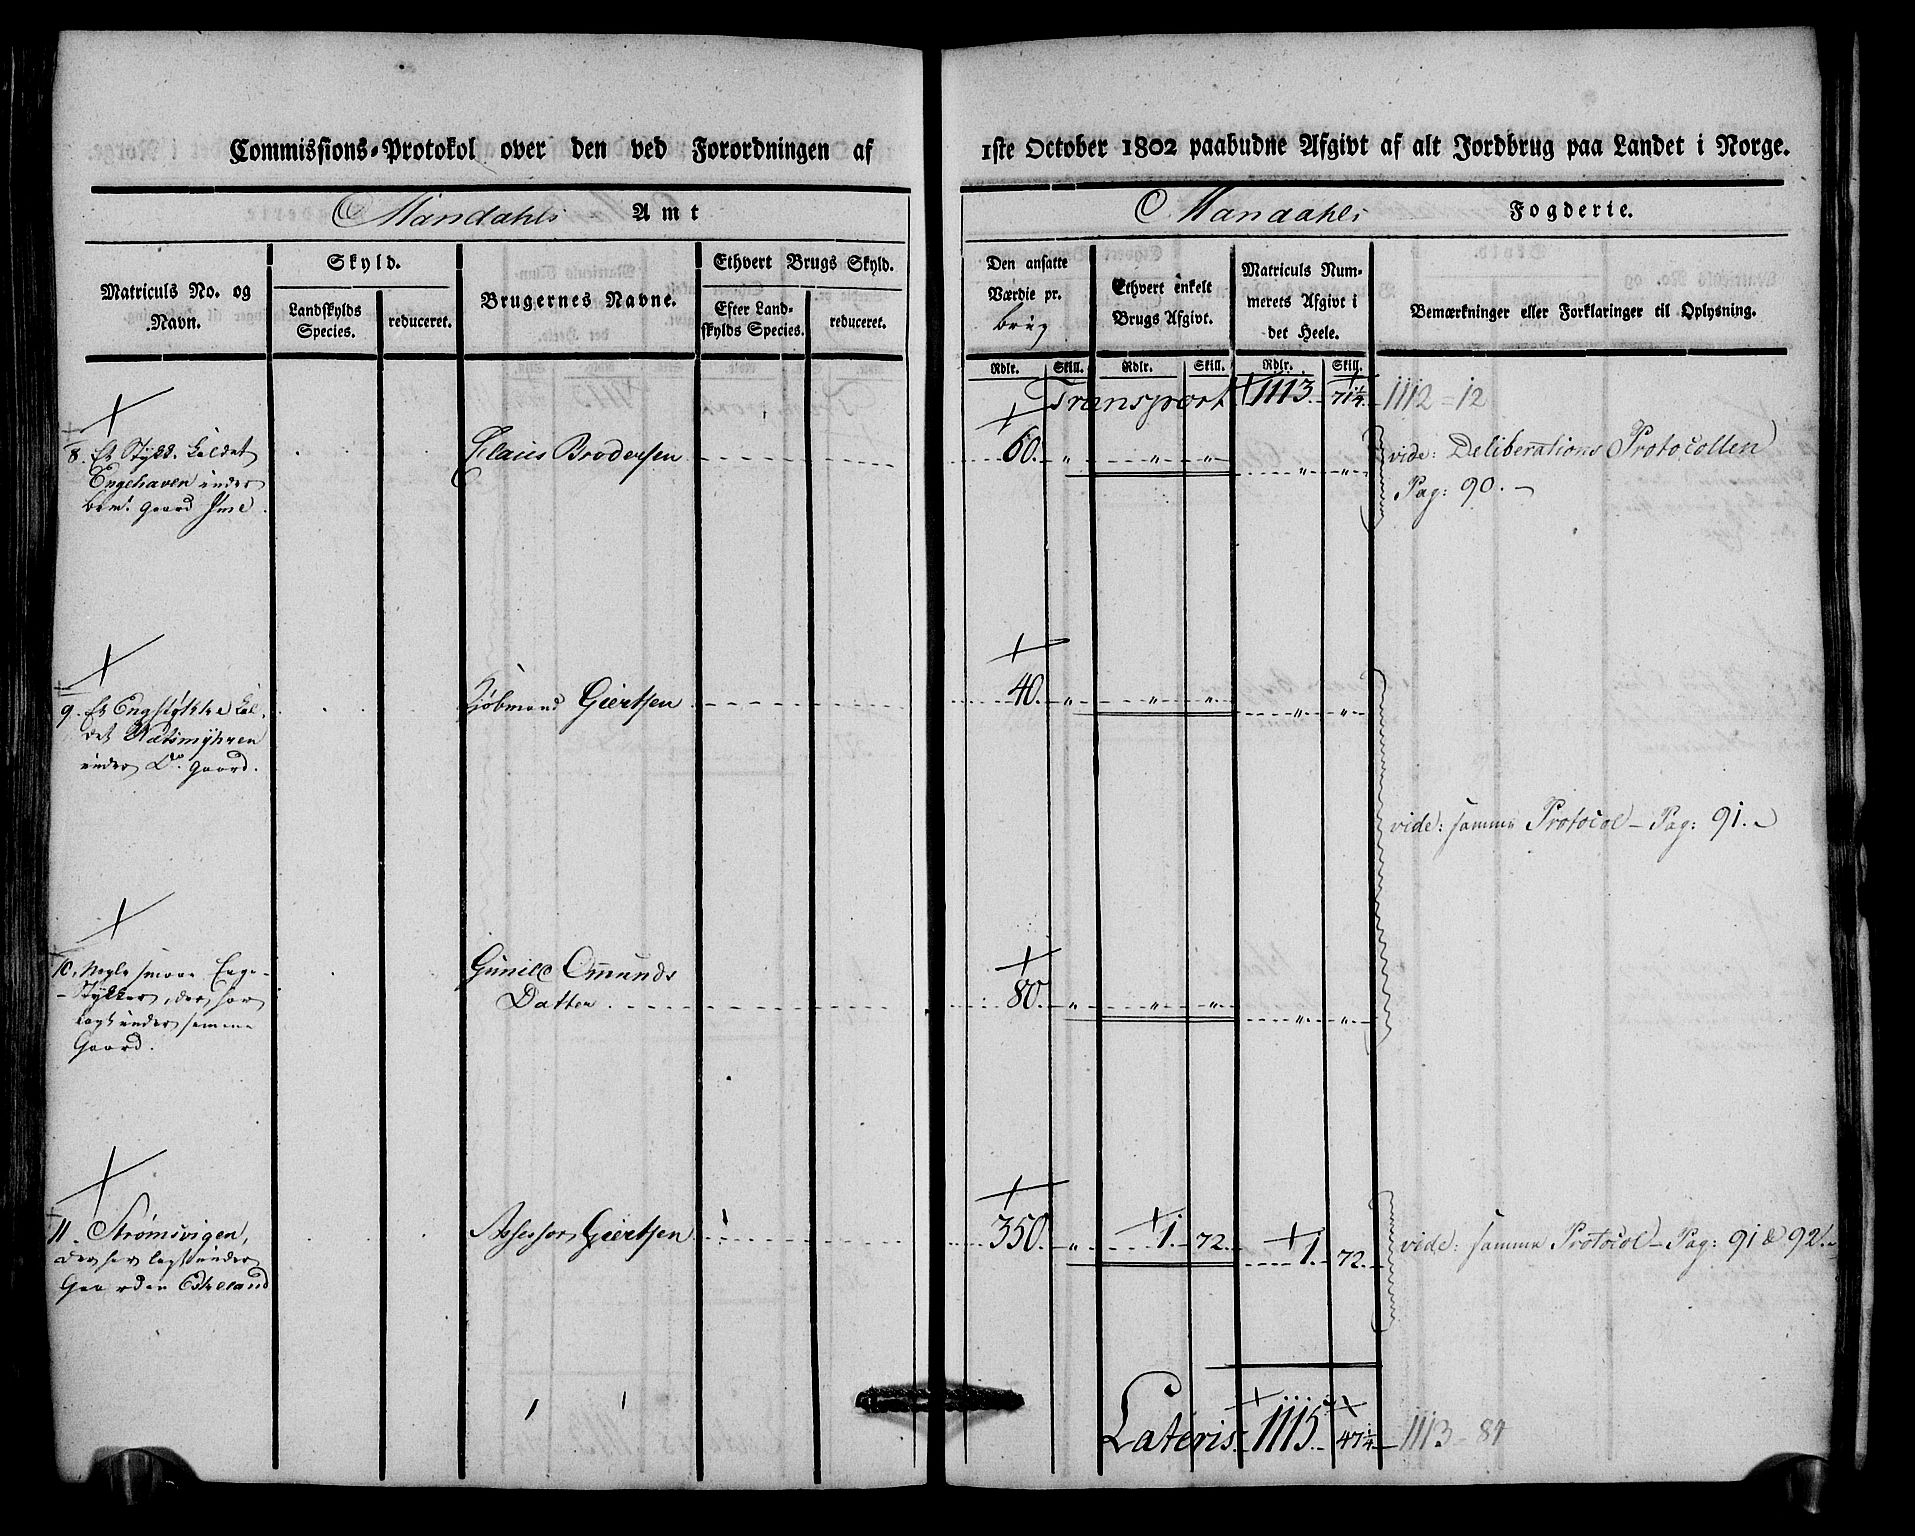 Commissions-Protokol over den ved Forordningen af 1ste October 1802 paabudne Afgivt af alt Jordbrug paa Landet i Norge.
Mandahls Amt
Mandahls Fogderie.
Matriculs No. og Navn.
Skyld.
Landskylds Species.
reduceret.
Brugernes Navne.
Ethvert Brugs Skyld.
Efter Landskylds Species.
reduceret.
Den ansatte Værdie pr. brug
Ethvert enkelt Brugs Afgivt.
Matriculs Nummerets Afgivt i det Heele.
Bemærkninger eller Forklaringer til Oplysning.
Rdlr. Skill. Rdlr. Skill. Rdlr. Skill.
Transport 1113. 71¼. 1112 = 12
8. Et Stykk. kaldet Claus Brodersen 60. " " " " " vide: Deliberations Protocollen
Engehaven under Pag: 90.
bem. gaard Ime.
9. Et Engstykke kal- Kjøbmand Giertsen 40. " " " " "
det Ratsmyhren
under Do. gaard.
vide: samme Protocol - Pag: 91.
10. Nogle smaae Enge- Gunild Omunds
Stykker, der har Datter 80. " " " " "
lagt under samme
Gaard.
11. Strømsvigen, Assessor Giertsen 350. " 1. 72. 1. 72. vide: samme Protocol - Pag: 91 & 92.
der har lagt under
Gaarden Eskeland
Lateris 1115. 47¼ 1113 - 84